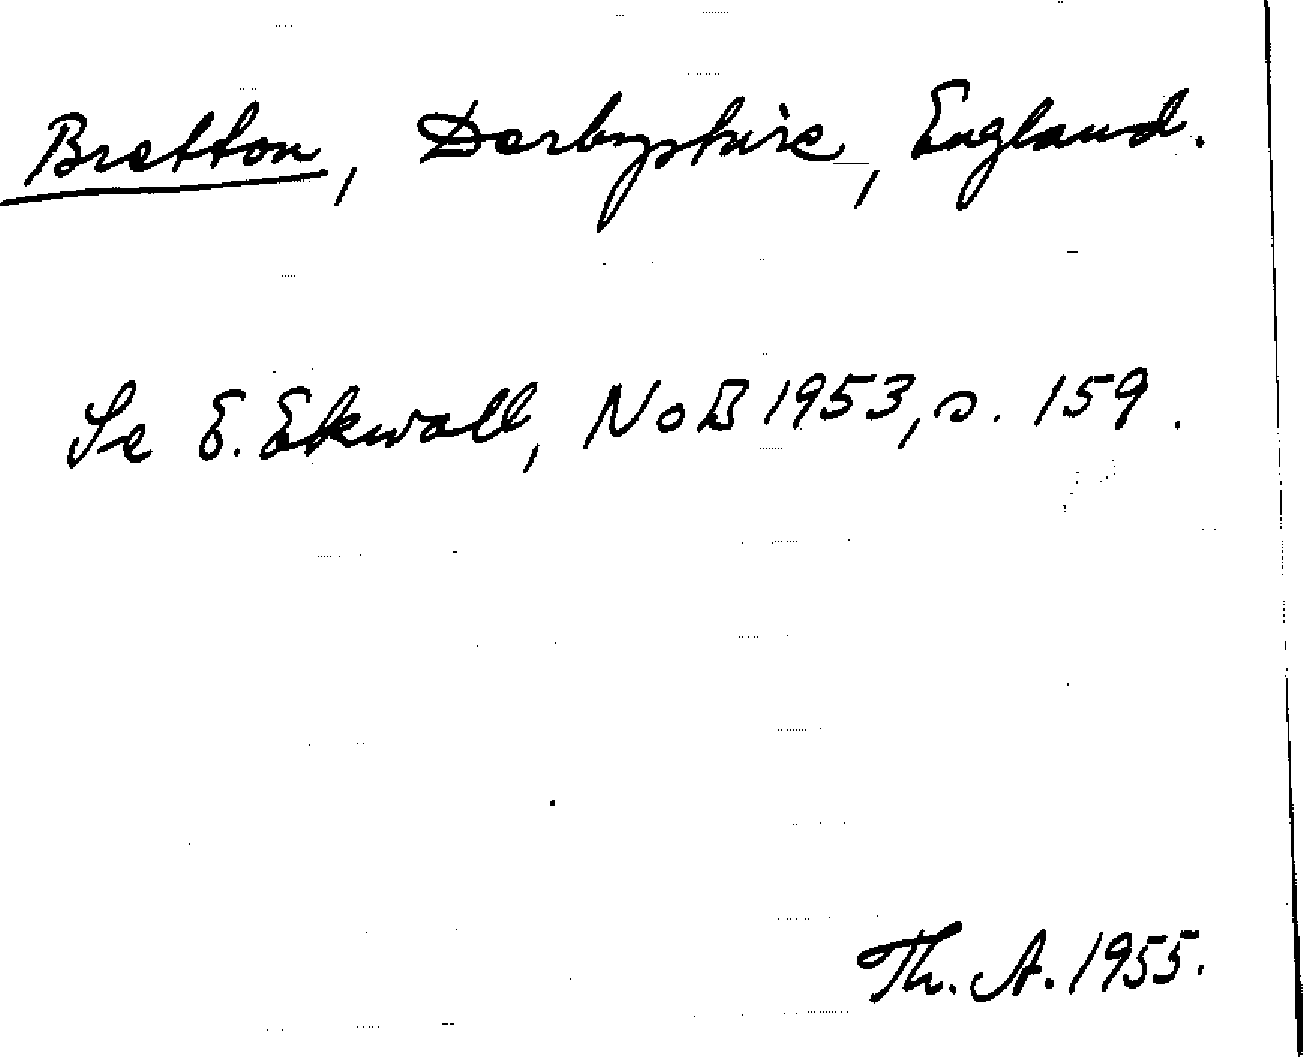 Bretton, Derbyshire, England.
Se E. Ekwall, NoB 1953, s. 159.
Th. A. 1955.